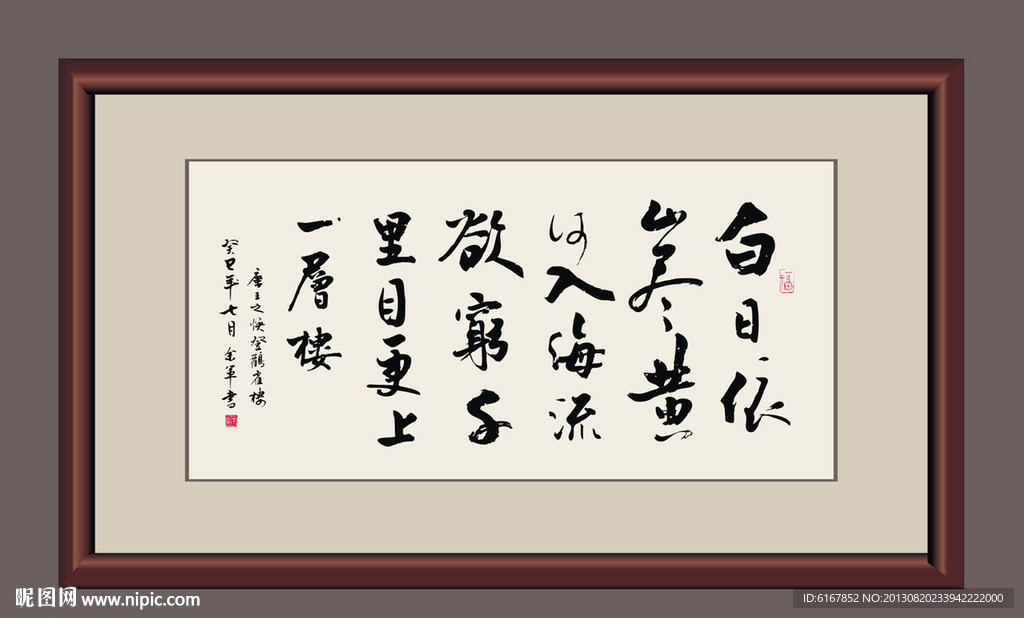 白日依
山尽黄
河入海流
欲窮千
里目更上
一層樓
唐王之涣登鸛雀樓
癸巳年七月余军書
福
昵图网 www.nipic.com
ID:6167852 NO:20130820233942222000